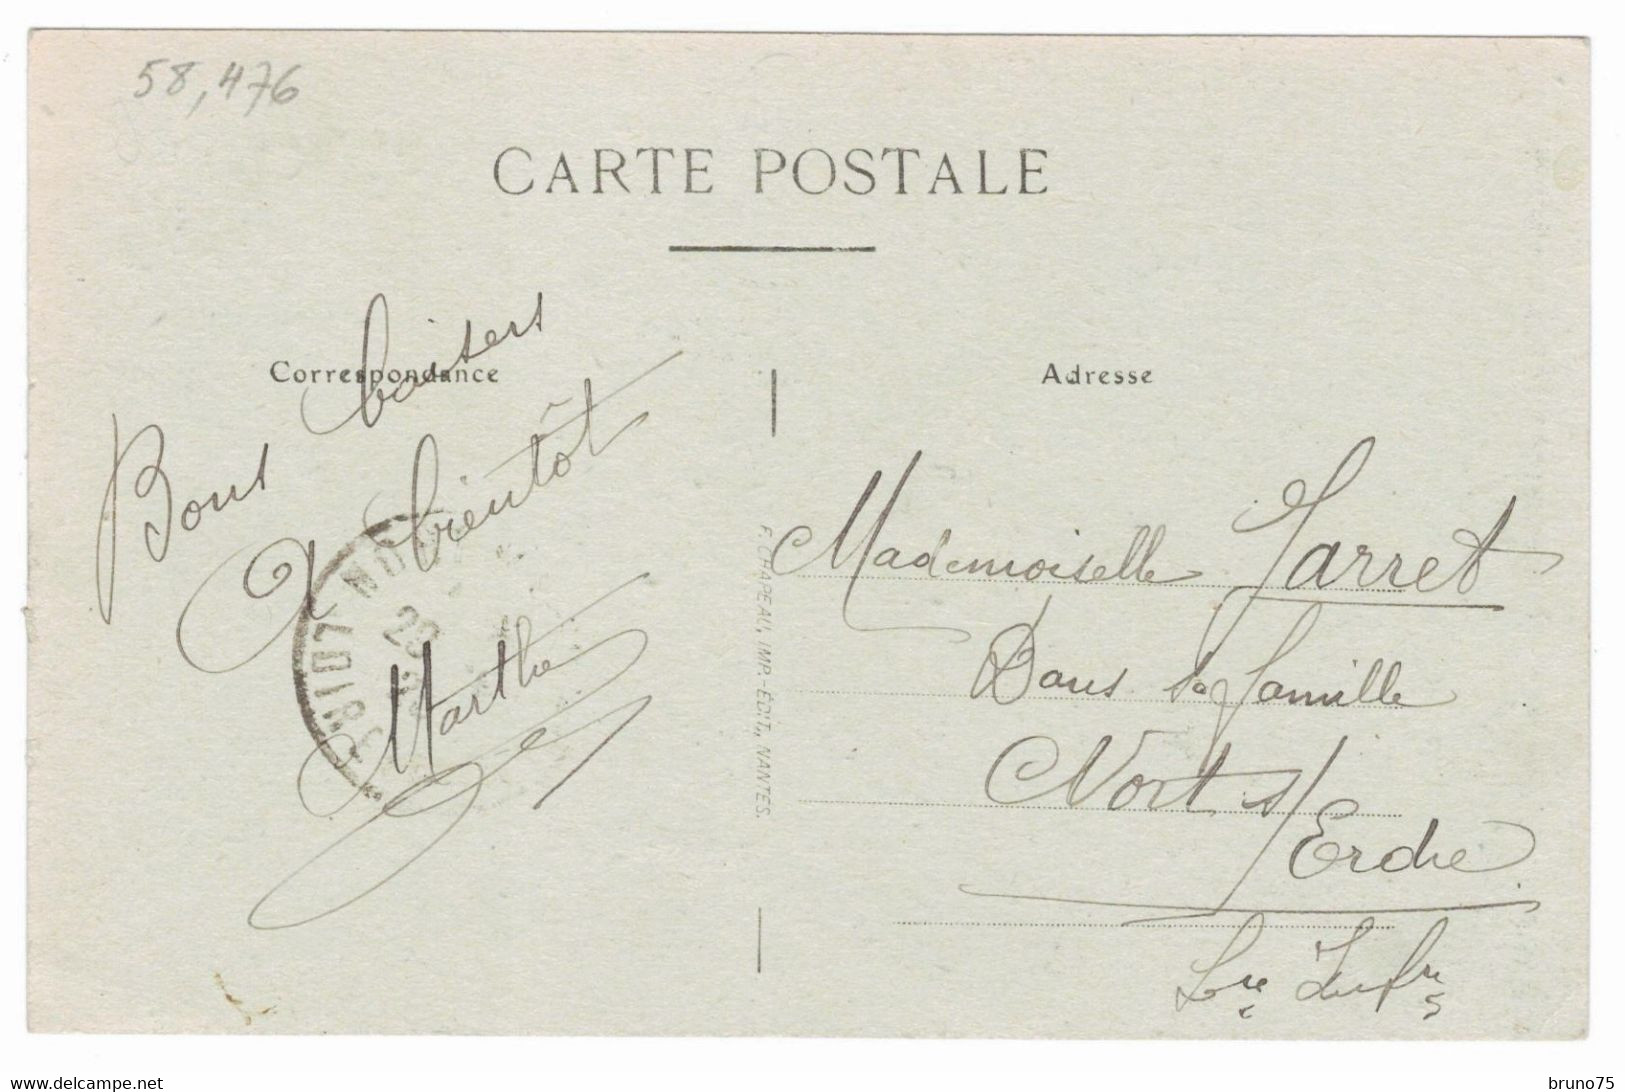 58,476
CARTE POSTALE
Correspondance
Bons baisers
A bientôt
Marthe
F. CHAPEAU, IMP.-ÉDIT., NANTES.
Adresse
Mademoiselle Jarret
Dans sa famille
Nort s/
Erdre
Lre Infre
www.delcampe.net
bruno75